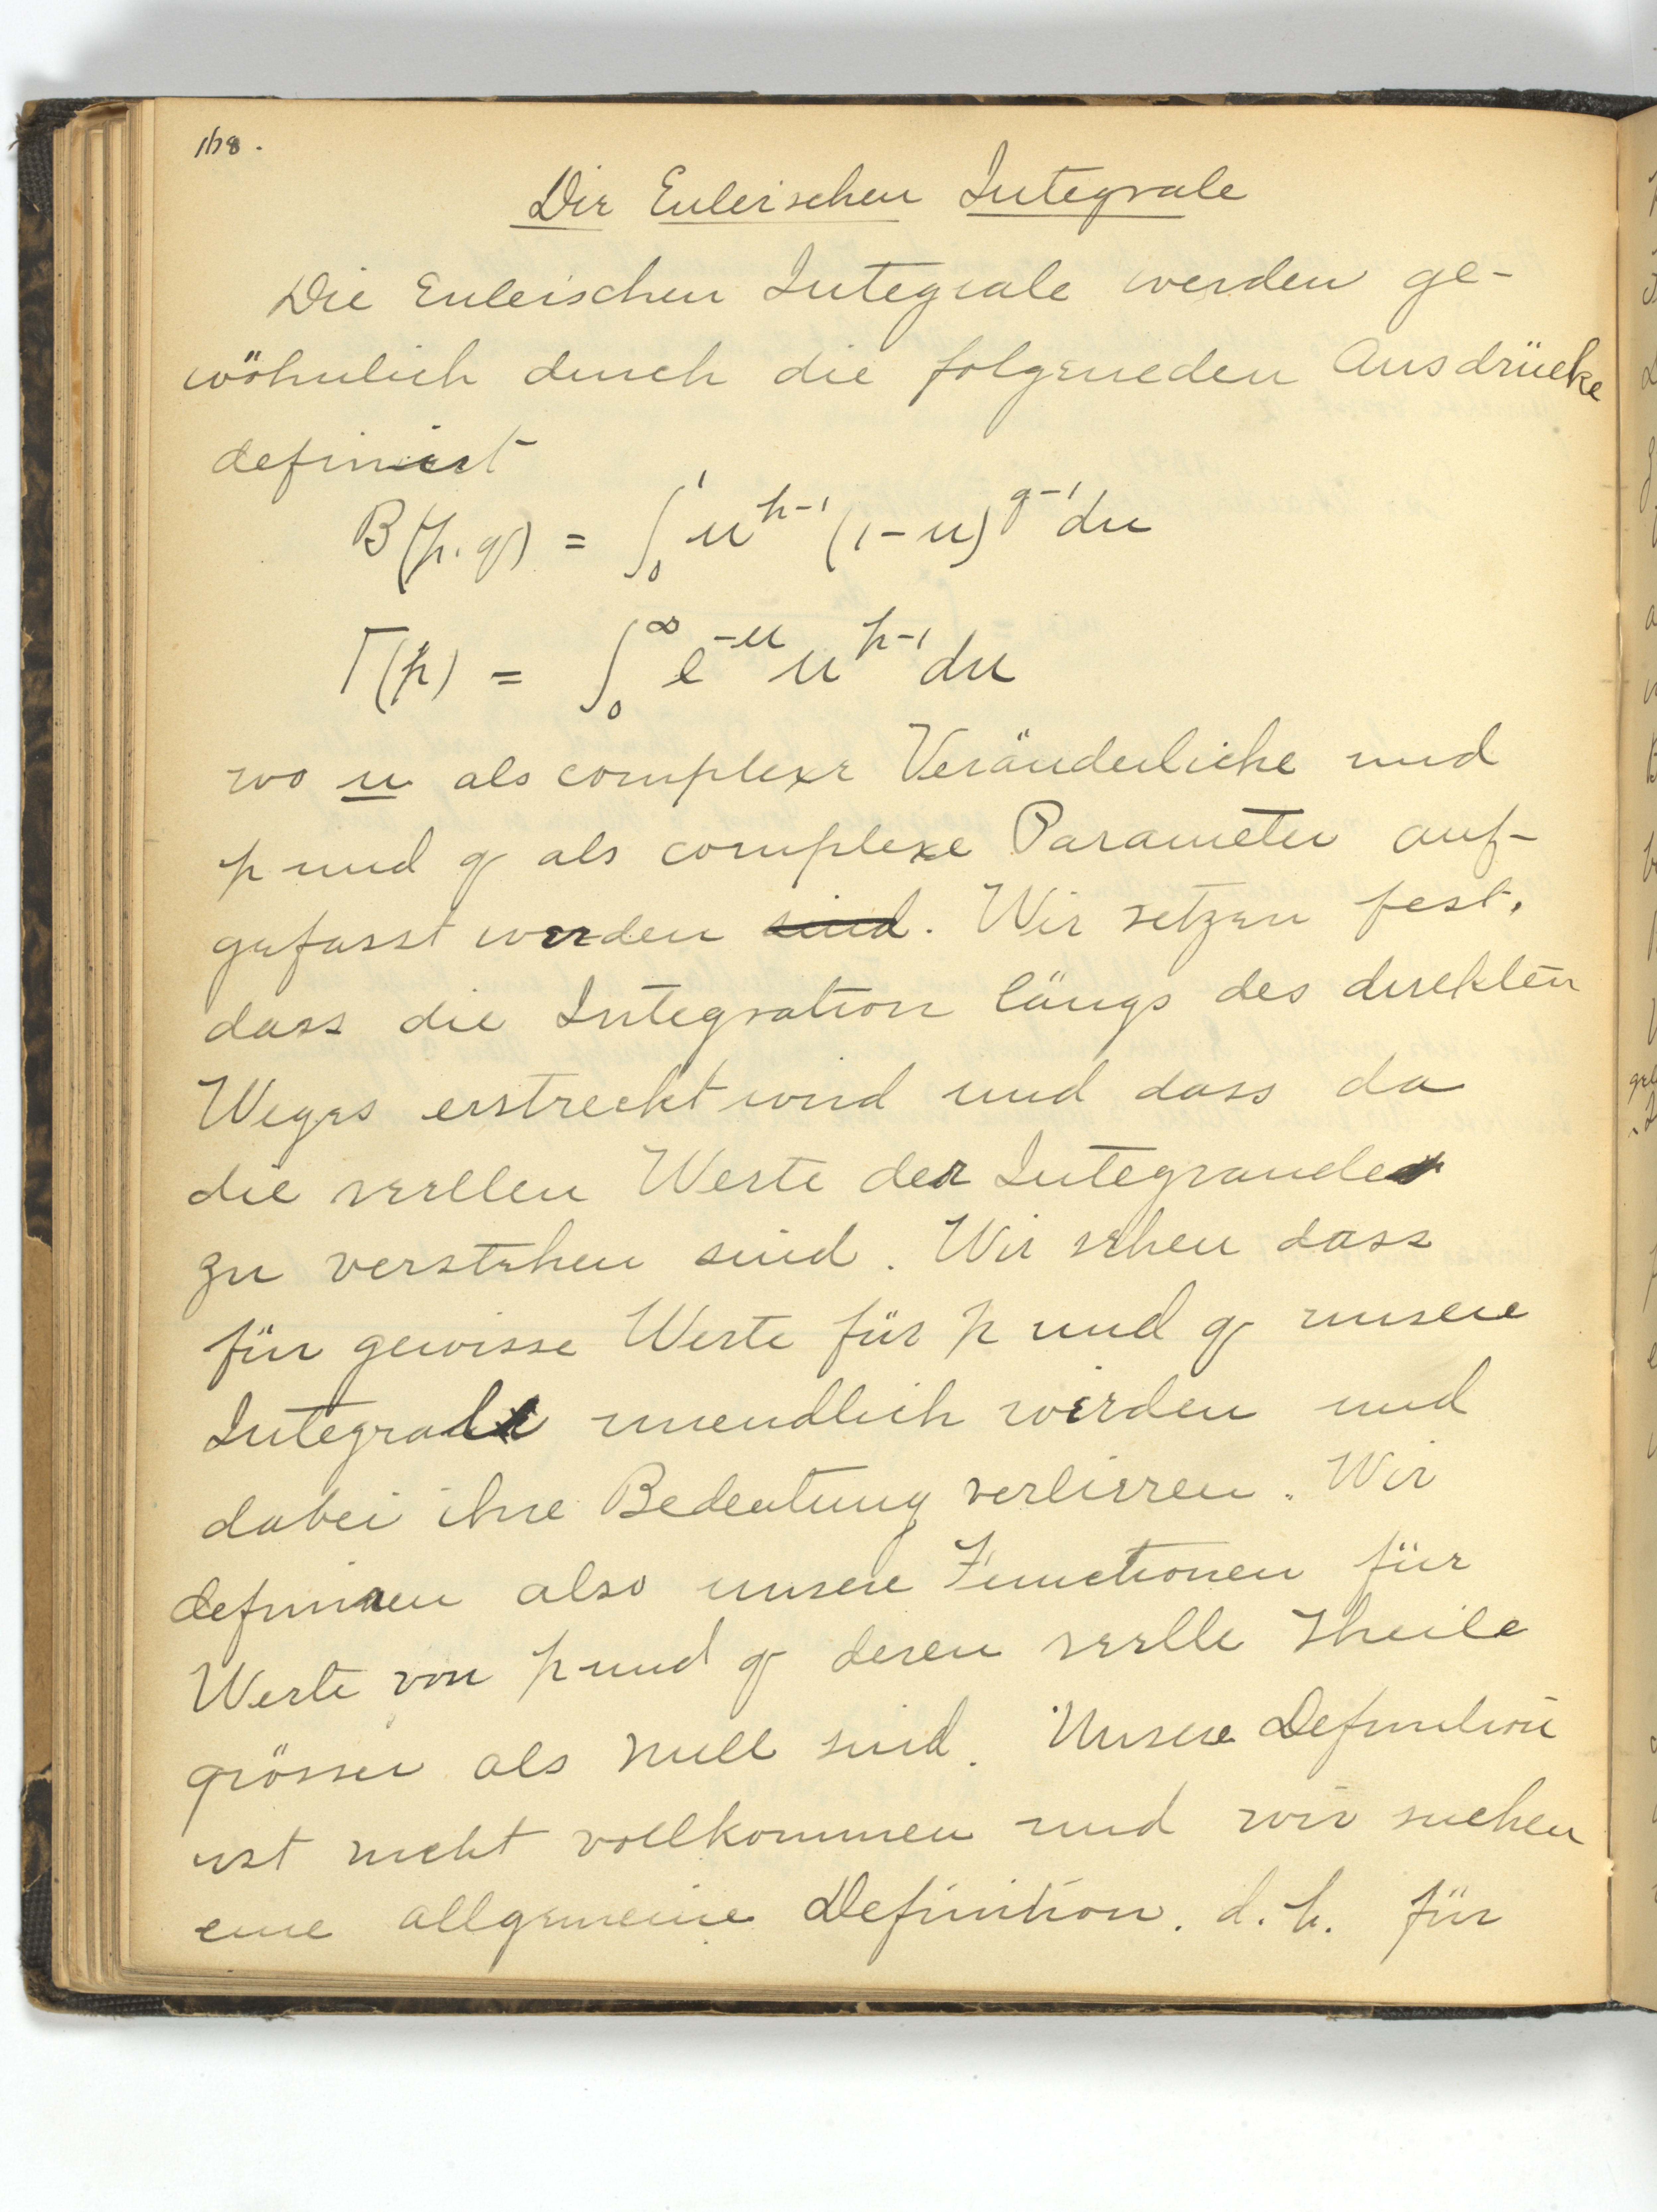 168.
Die Eulerischen Integrale
Die Eulerischen Integrale werden ge-
wöhnlich durch die folgeneden Ausdrücke
definiert
B(p.q) = ∫₀¹ u^{p-1} (1-u)^{q-1} du
Γ(p) = ∫₀^∞ e^{-u} u^{p-1} du
wo u als complexe Veränderliche und
p und q als complexe Parameter auf-
gefasst werden sind. Wir setzen fest,
dass die Integration längs des direkten
Weges erstreckt wird und dass da
die reellen Werte der Integrande
zu verstehen sind. Wir sehen dass
für gewisse Werte für p und q unsere
Integrale unendlich werden und
dabei ihre Bedeutung verlieren. Wir
definiren also unsere Functionen für
Werte von p und q deren reelle Theile
grösser als Null sind. Unsere Definition
ist nicht vollkommen und wir suchen
eine allgemeine Definition. d.h. für